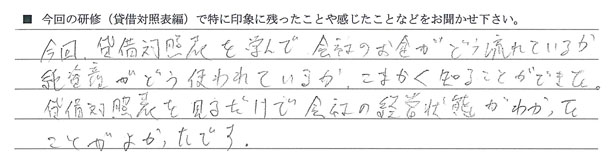 ■ 今回の研修（貸借対照表編）で特に印象に残ったことや感じたことなどをお聞かせ下さい。
今回、貸借対照表を学んで会社のお金がどう流れているか
純資産がどう使われているか、こまかく知ることができた。
貸借対照表を見るだけで会社の経営状態がわかった
ことがよかったです。